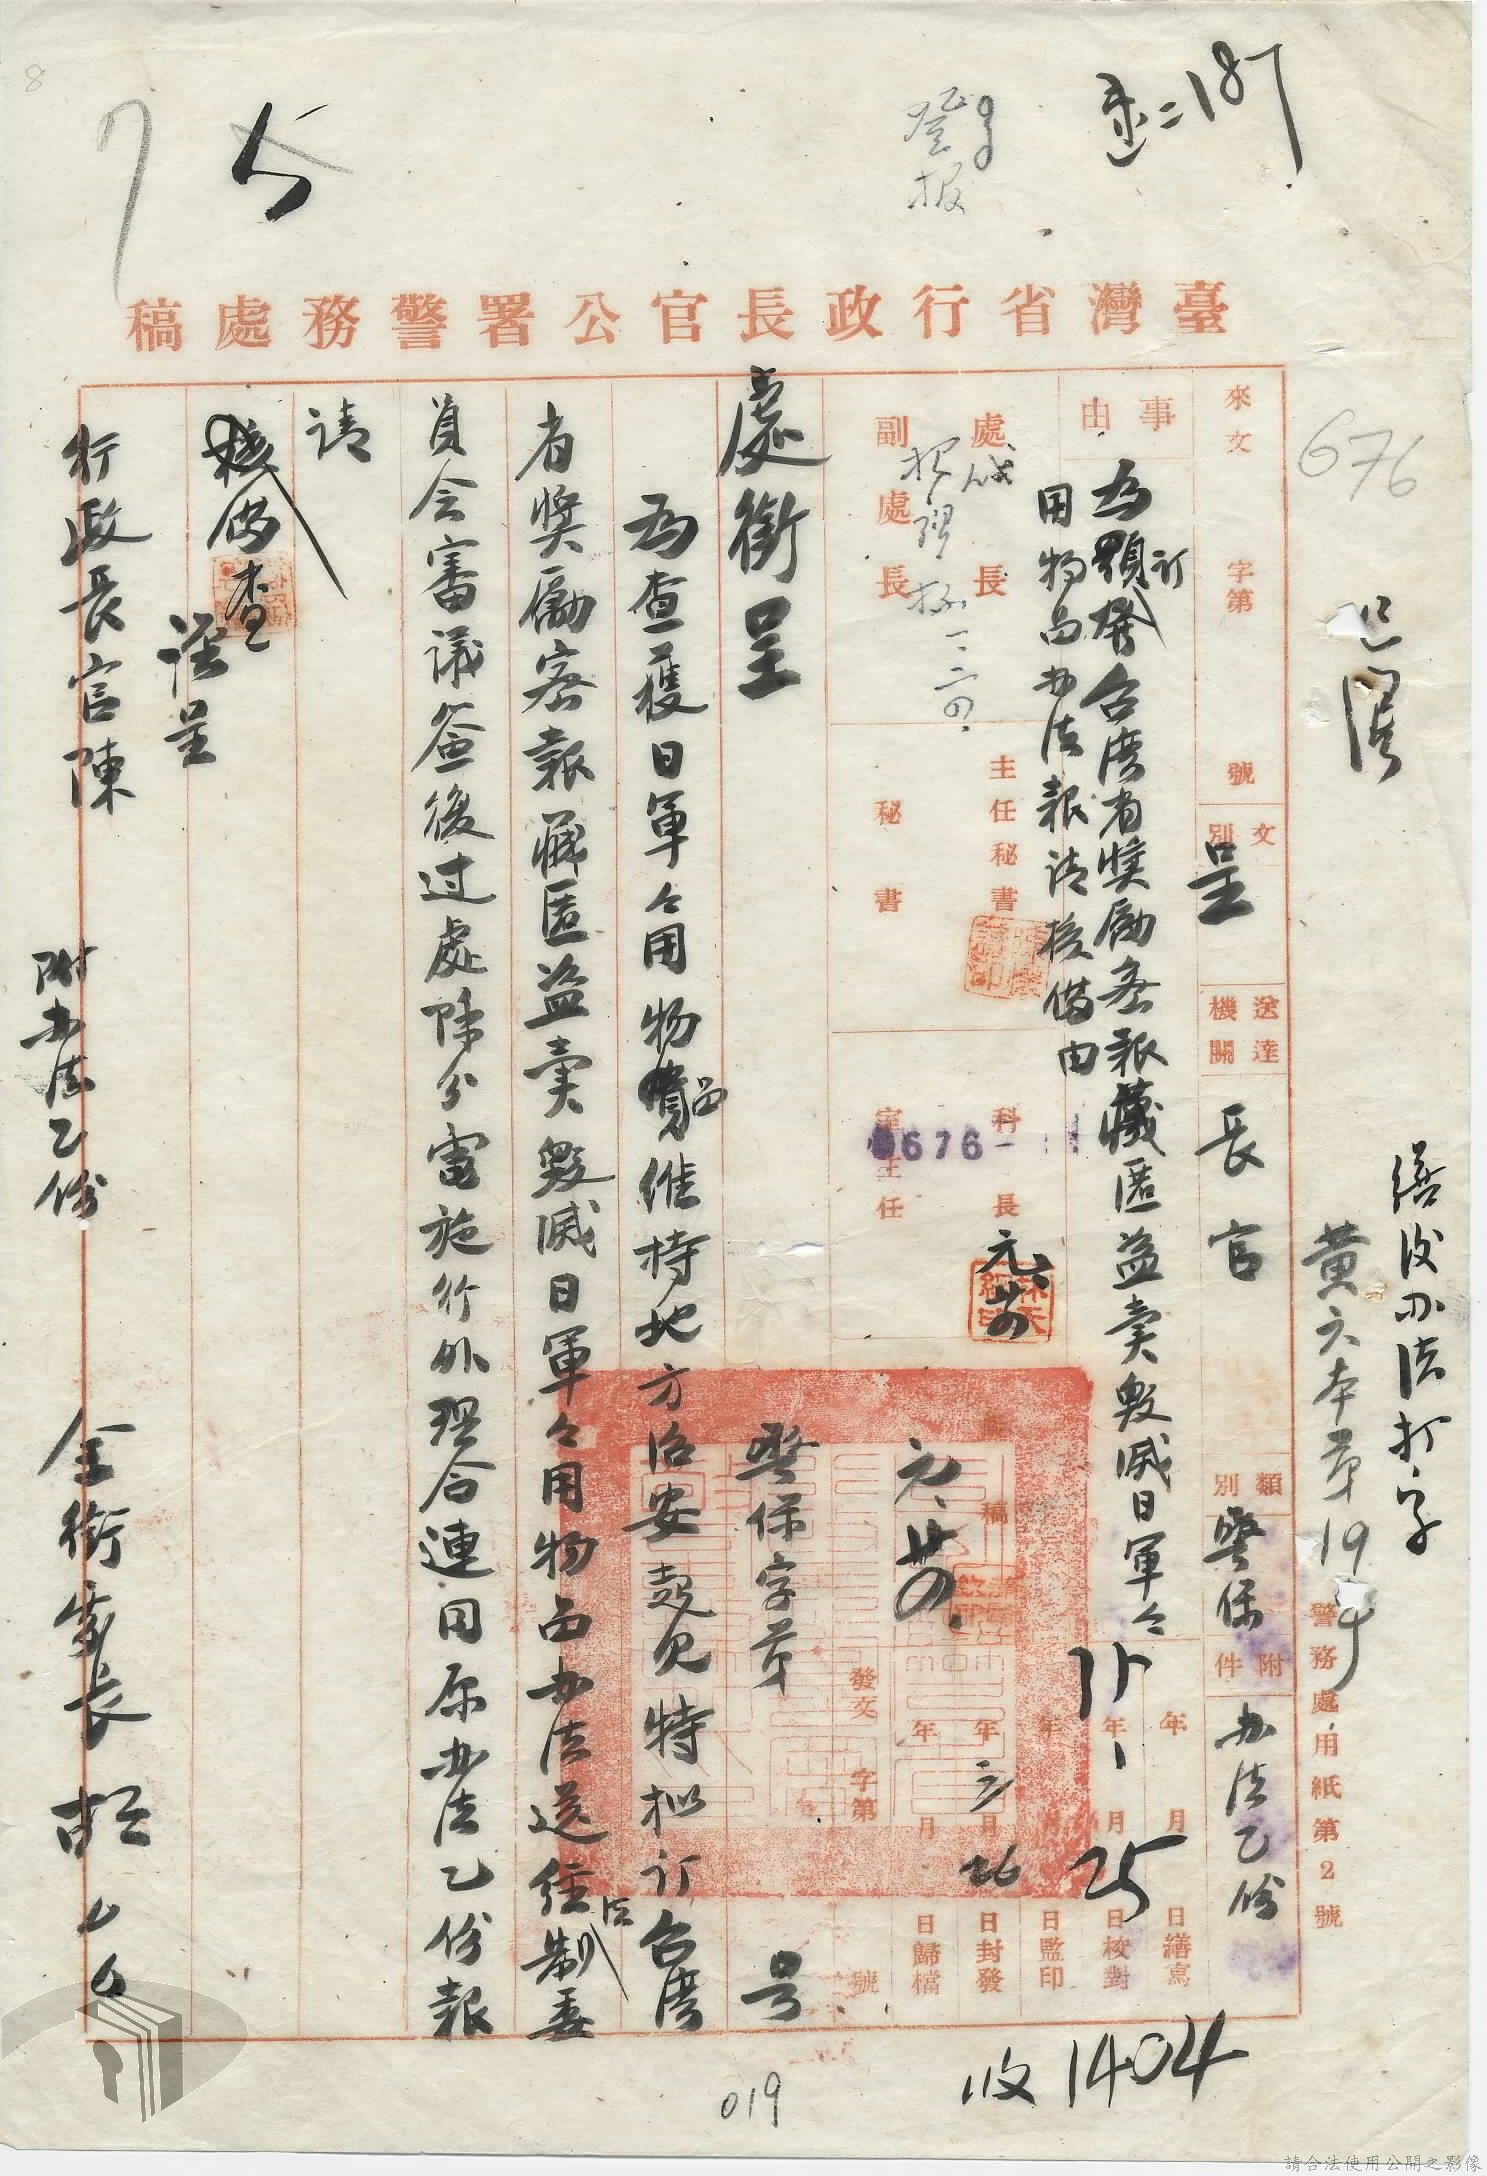 8
登報
187
臺灣省行政長官公署警務處稿
676
繕後办法打字
黃六本第19
警務處用紙第2號
來文
字第
號
文別
呈
送達機關
長官
類別
警保
附件
办法乙份
事由
為訂台湾省獎勵密報藏匿盜賣毀滅日軍々
用物品办法報請核備由
處長
副處長
一、二四.
主任秘書
秘書
科長
室主任
元、廿四
0676
元、廿四.
稿
年 月 日繕寫
35年1月25日校對
年 月 日監印
年 月26日封發
年 月 日歸檔
發文 字第 號
處銜呈
警保字第 号
為查獲日軍々用物品維持地方治安起見特拟订台湾
省獎勵密報藏匿盜賣毀滅日軍々用物品办法送經法制委
員会審議簽後过處除分電施行外理合連同原办法乙份報
請
核備查
謹呈
行政長官陳
附办法乙份
全銜處長胡○○
收1404
019
請合法使用公開之影像